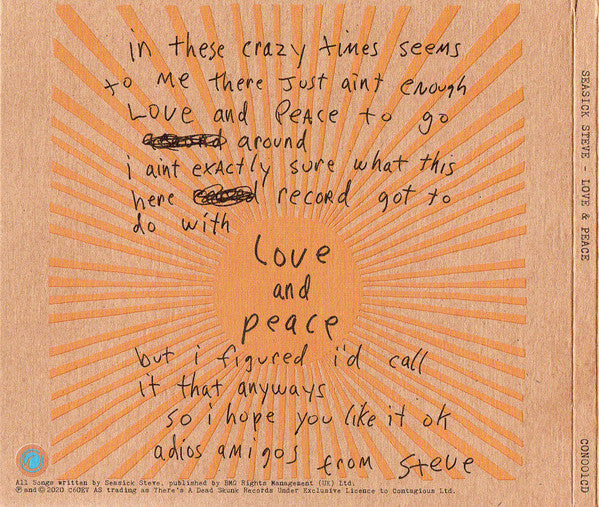 in these crazy times seems
to me there just aint enough
LOVE and PEACE to go
around
i aint exactly sure what this
here record got to
do with
Love
and
peace
but i figured i'd call
it that anyways
so i hope you like it ok
adios amigos from Steve
All Songs written by Seasick Steve, published by BMG Rights Management (UK) Ltd.
℗ and © 2020 C6OEV AS trading as There's A Dead Skunk Records Under Exclusive Licence to Contagious Ltd.
SEASICK STEVE - LOVE & PEACE
CON001CD